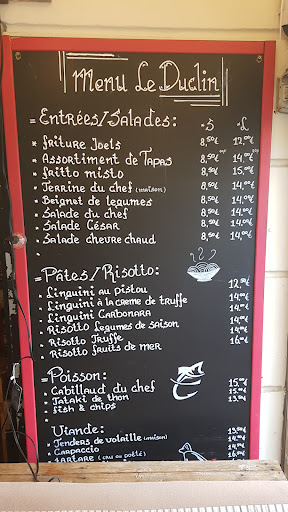 Menu Le Duclin
= Entrées/Salades: S L
* friture Joels 8,50€ 12,00€
* Assortiment de Tapas 8,50€ 14,00€
* fritto misto 8,50€ 15,00€
* Terrine du chef (maison) 8,50€ 14,00€
* Beignet de legumes 8,50€ 14,00€
* Salade du chef 8,50€ 14,00€
* Salade César 8,50€ 14,00€
* Salade chevre chaud 8,50€ 14,00€
= Pâtes/Risotto:
* Linguini au pistou 12,50€
* Linguini à la creme de truffe 14,00€
* Linguini Carbonara 14,00€
* Risotto Legumes de saison 14,00€
* Risotto Truffe 14,00€
* Risotto fruits de mer 16,00€
= Poisson:
* Cabillaud du chef 15,00€
* Tataki de thon 15,00€
* fish & chips 13,00€
Viande:
* Tenders de volaille (maison) 13,50€
* Carpaccio 14,00€
* Tartare (cru ou poêlé) 16,00€